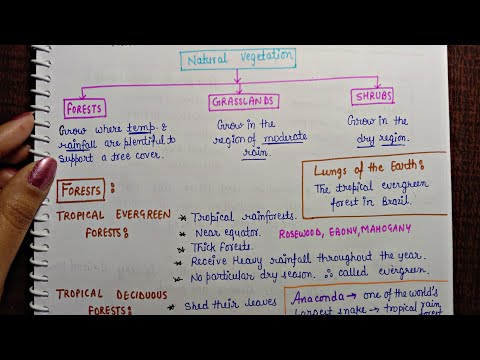 Natural Vegetation
FORESTS
GRASSLANDS
SHRUBS
Grow where temp. &
rainfall are plentiful to
support a tree cover.
Grow in the
region of moderate
rain.
Grow in the
dry region.
Lungs of the Earth :
The tropical evergreen
forest in Brazil.
FORESTS :
TROPICAL EVERGREEN
FORESTS :
* Tropical rainforests.
* Near equator.
ROSEWOOD, EBONY, MAHOGANY
* Thick forests.
* Receive Heavy rainfall throughout the year.
* No particular dry season. ∴ called evergreen.
TROPICAL DECIDUOUS
FORESTS :
* Shed their leaves
Anaconda → one of the world's
largest snake → tropical rain
forest